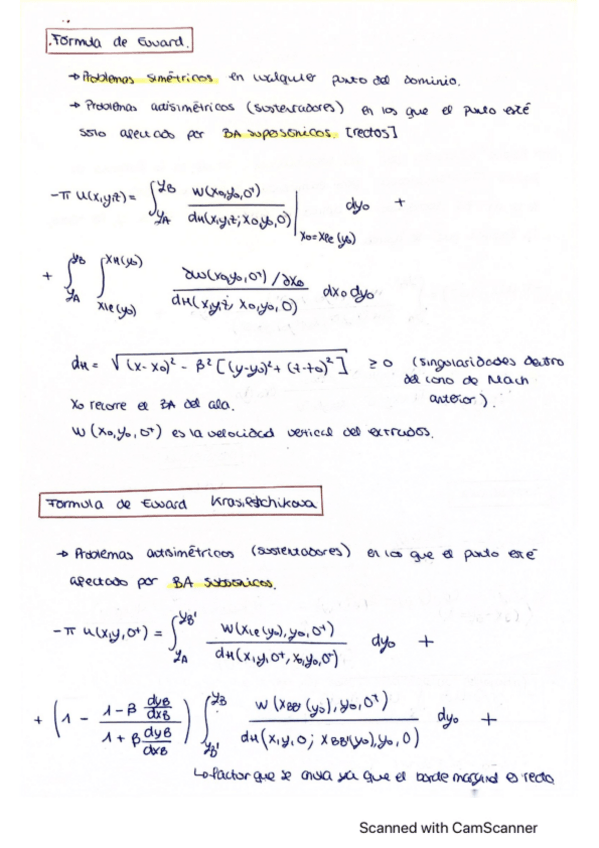 .Fórmula de Evvard.
→ Problemas simétricos en cualquier punto del dominio.
→ Problemas antisimétricos (sustentadores) en los que el punto esté
solo afectado por BA supersónicos. [rectos]
-π u(x,y,z) = ∫_{y_A}^{y_B} w(x_0,y_0,0⁺) / d_H(x,y,z; x_0,y_0,0) |_{x_0=x_{le}(y_0)} dy_0 +
+ ∫_{y_A}^{y_B} ∫_{x_{le}(y_0)}^{x_H(y_0)} ∂w(x_0,y_0,0⁺)/∂x_0 / d_H(x,y,z, x_0,y_0,0) dx_0 dy_0
d_H = √((x-x_0)² - β²[(y-y_0)² + (z-z_0)²]) ≥ 0 (singularidades dentro
del cono de Mach
anterior).
x_0 recorre el BA del ala.
w(x_0,y_0,0⁺) es la velocidad vertical del extradós.
Fórmula de Evvard Krasilstchikova
→ Problemas antisimétricos (sustentadores) en los que el punto esté
afectado por BA subsónicos.
-π u(x,y,0⁺) = ∫_{y_A}^{y_B'} w(x_{le}(y_0),y_0,0⁺) / d_H(x,y,0⁺,x_0,y_0,0⁺) dy_0 +
+ (1 - (1-β dy_B/dx_B) / (1+β dy_B/dx_B)) ∫_{y_B'}^{y_B} w(x_{BB'}(y_0),y_0,0⁺) / d_H(x,y,0; x_{BB'}(y_0),y_0,0) dy_0 +
↳ factor que se anula ya que el borde marginal es recto
Scanned with CamScanner